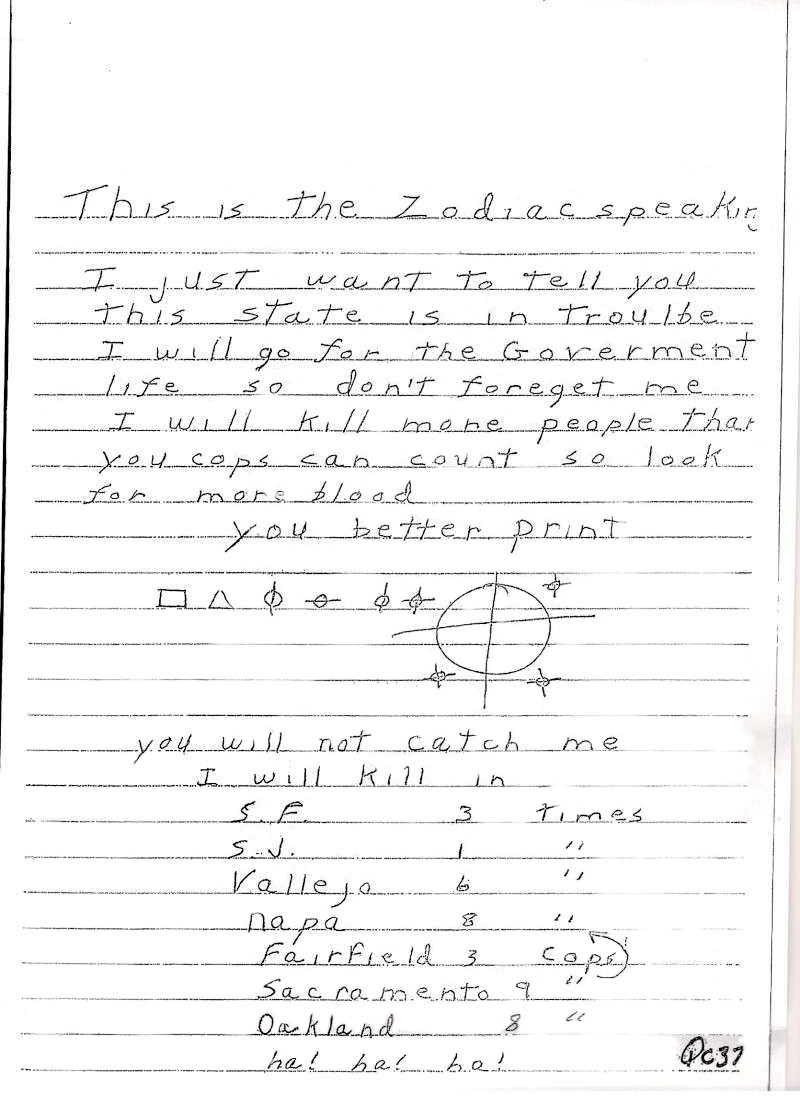 This is the Zodiac speakin
I just want to tell you
this state is in troulbe
I will go for the Goverment
life so don't foreget me
I will kill more people than
you cops can count so look
for more blood
you better print
you will not catch me
I will kill in
S.F. 3 times
S.J. 1 "
Vallejo 6 "
napa 8 "
Fairfield 3 cops
Sacramento 9 "
Oakland 8 "
ha! ha! ha!
QC37